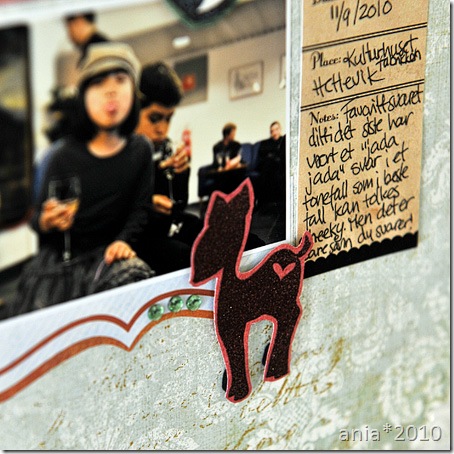 11/9/2010
Place: Kulturhuset
Notes: Favorittsvaret
ditt det siste har
vært et "jada
jada" svar i et
tonefall som i beste
fall kan tolkes
cheeky. Men det er
bare sånn du svarer!
ania*2010